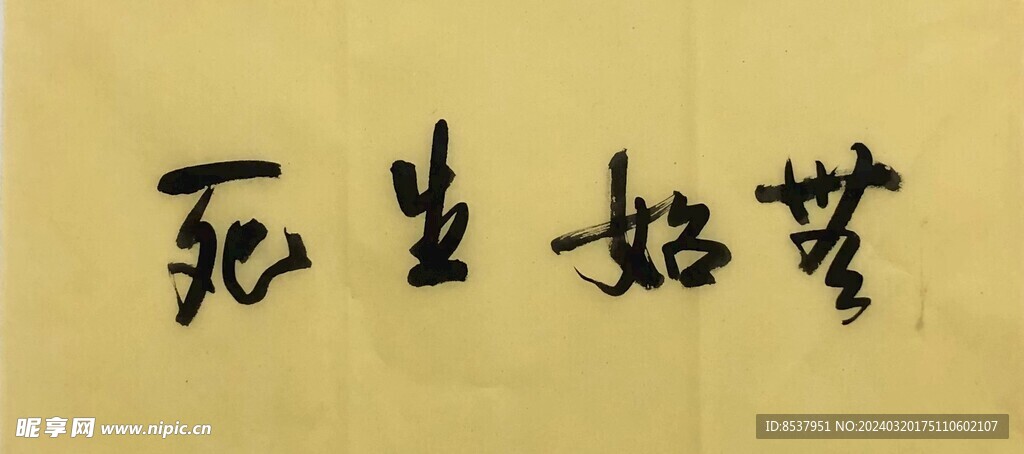 無始生死
昵享网 www.nipic.cn
ID:8537951 NO:20240320175110602107